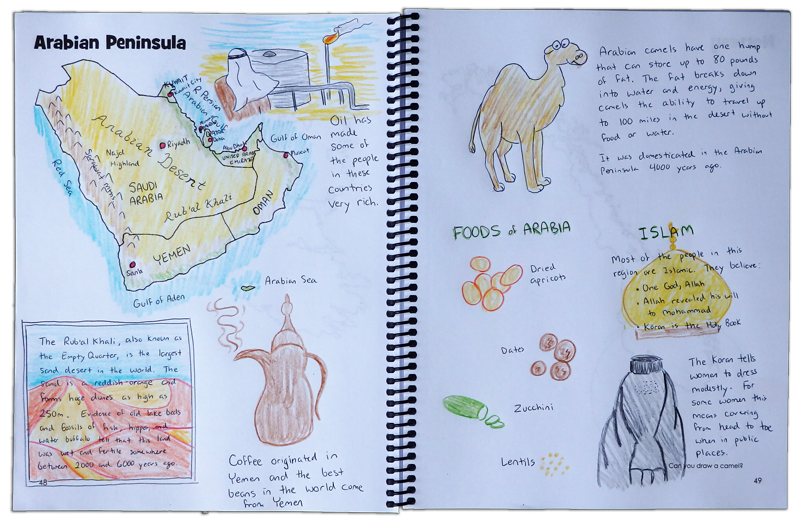 Arabian Peninsula
KUWAIT
Kuwait City
Persian
Arabian Gulf
Arabian Desert
Riyadh
Najd
Highland
Red Sea
SAUDI
ARABIA
Rub'al Khali
Abu Dhabi
UNITED ARAB
EMIRATES
Gulf of Oman
Muscat
OMAN
YEMEN
Sana
Arabian Sea
Gulf of Aden
Oil has
made
some of
the people
in these
countries
very rich.
The Rub'al Khali, also known as
the Empty Quarter, is the largest
sand desert in the world. The
sand is a reddish-orange and
forms huge dunes as high as
250m. Evidence of old lake beds
and fossils of fish, hippos, and
water buffalo tell that this land
was wet and fertile somewhere
between 2000 and 6000 years ago.
48
Coffee originated in
Yemen and the best
beans in the world come
from Yemen
Arabian camels have one hump
that can store up to 80 pounds
of fat. The fat breaks down
into water and energy, giving
camels the ability to travel up
to 100 miles in the desert without
food or water.
It was domesticated in the Arabian
Peninsula 4000 years ago.
FOODS of ARABIA
Dried
apricots
Dates
Zucchini
Lentils
ISLAM
Most of the people in this
region are Islamic. They believe:
• One God, Allah
• Allah revealed his will
to Mohammad
• Koran is the Holy Book
The Koran tells
women to dress
modestly. For
some women this
means covering
from head to toe
when in public
places.
Can you draw a camel?
49